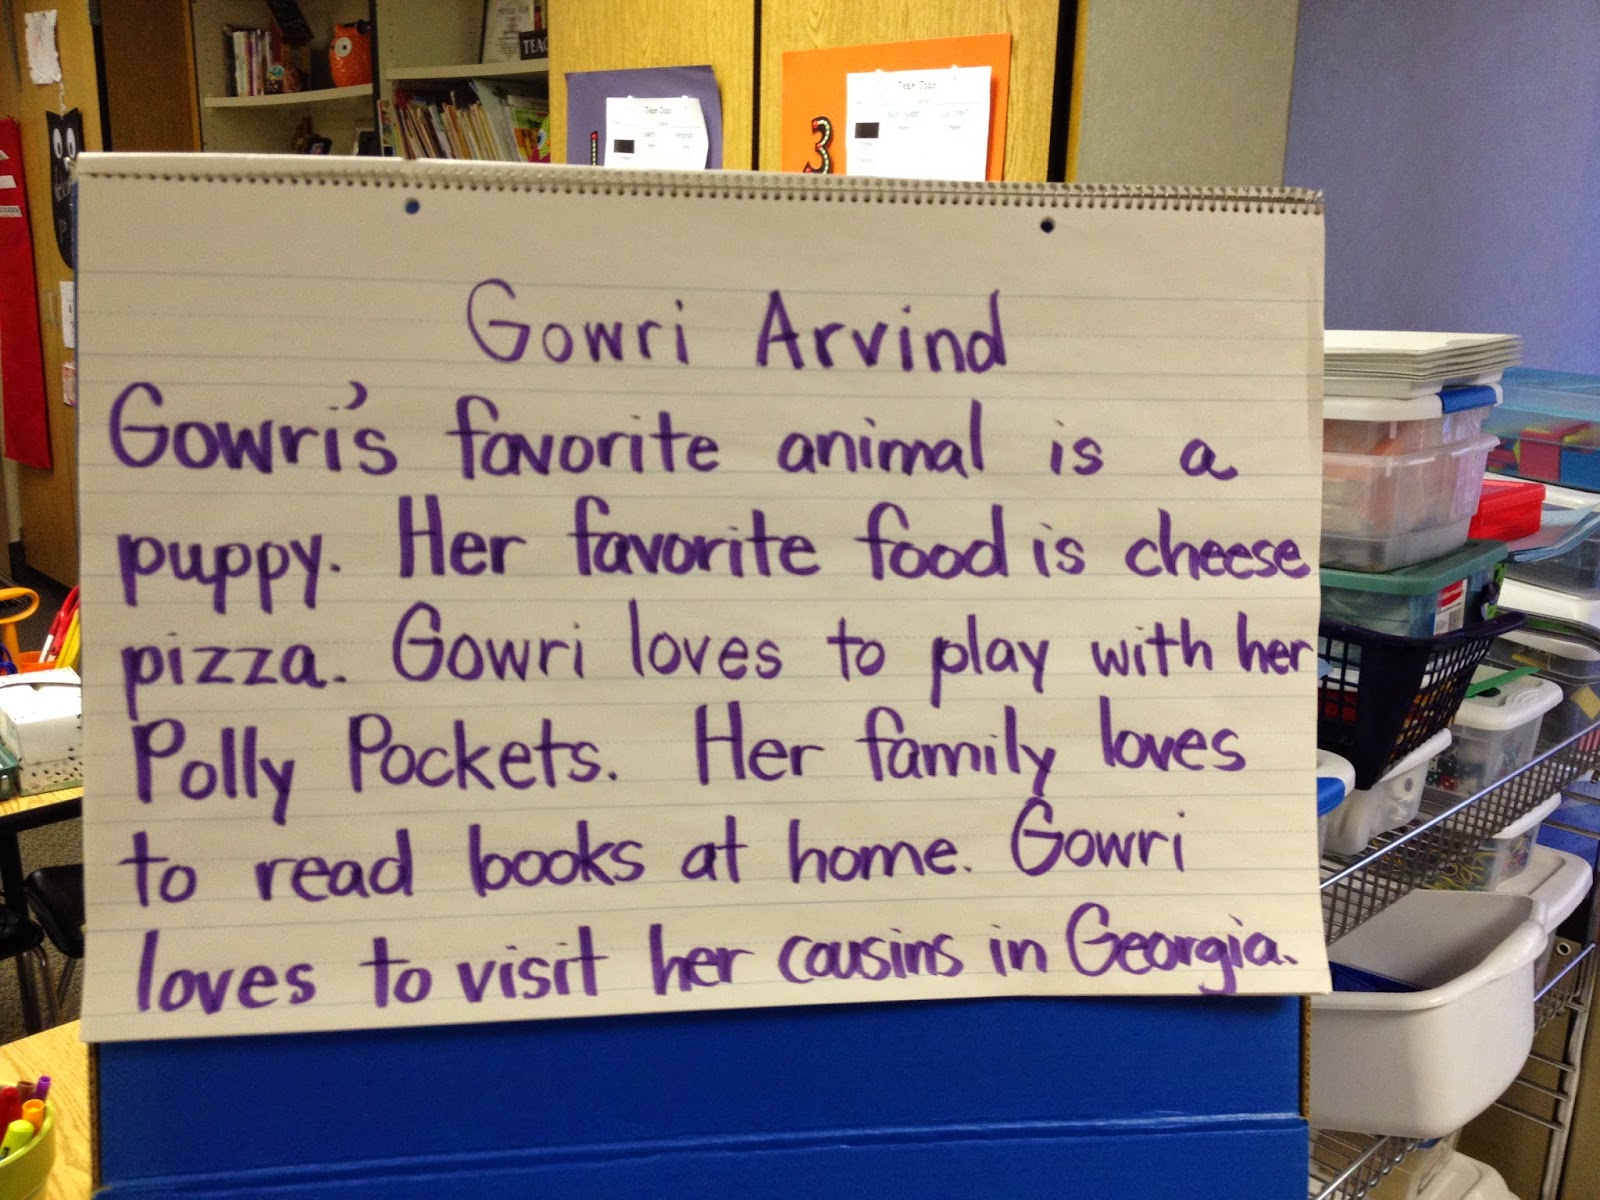 TEAC
Team Jobs
Team Jobs
1
3
Gowri Arvind
Gowri's favorite animal is a
puppy. Her favorite food is cheese
pizza. Gowri loves to play with her
Polly Pockets. Her family loves
to read books at home. Gowri
loves to visit her cousins in Georgia.